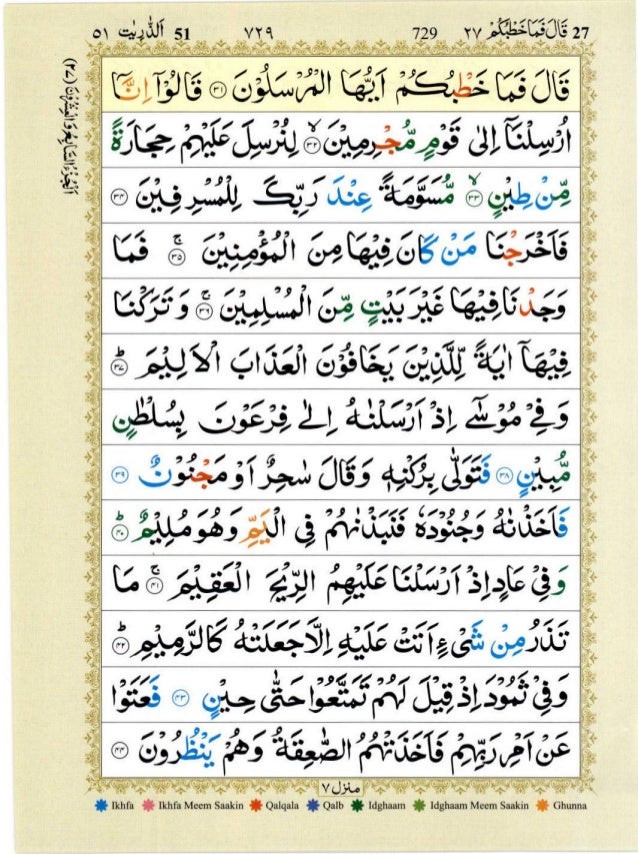 ٥١ الذّٰرِيٰت 51 ٧٢٩ 729 قَالَ فَمَا خَطْبُكُمْ ٢٧ 27
اَلْجُزْءُ السَّابِعُ وَالْعِشْرُوْنَ (٢٧)
قَالَ فَمَا خَطْبُكُمْ اَيُّهَا الْمُرْسَلُوْنَ ٣١ قَالُوْۤا اِنَّاۤ
اُرْسِلْنَاۤ اِلٰى قَوْمٍ مُّجْرِمِيْنَ ۙ ٣٢ لِنُرْسِلَ عَلَيْهِمْ حِجَارَةً
مِّنْ طِيْنٍ ۙ ٣٣ مُّسَوَّمَةً عِنْدَ رَبِّكَ لِلْمُسْرِفِيْنَ ٣٤
فَاَخْرَجْنَا مَنْ كَانَ فِيْهَا مِنَ الْمُؤْمِنِيْنَ ۚ ٣٥ فَمَا
وَجَدْنَا فِيْهَا غَيْرَ بَيْتٍ مِّنَ الْمُسْلِمِيْنَ ۚ ٣٦ وَتَرَكْنَا
فِيْهَاۤ اٰيَةً لِّلَّذِيْنَ يَخَافُوْنَ الْعَذَابَ الْاَلِيْمَ ؕ ٣٧
وَفِيْ مُوْسٰۤى اِذْ اَرْسَلْنٰهُ اِلٰى فِرْعَوْنَ بِسُلْطٰنٍ
مُّبِيْنٍ ٣٨ فَتَوَلّٰى بِرُكْنِهٖ وَقَالَ سٰحِرٌ اَوْ مَجْنُوْنٌ ٣٩
فَاَخَذْنٰهُ وَجُنُوْدَهٗ فَنَبَذْنٰهُمْ فِى الْيَمِّ وَهُوَ مُلِيْمٌ ؕ ٤٠
وَفِيْ عَادٍ اِذْ اَرْسَلْنَا عَلَيْهِمُ الرِّيْحَ الْعَقِيْمَ ۚ ٤١ مَا
تَذَرُ مِنْ شَيْءٍ اَتَتْ عَلَيْهِ اِلَّا جَعَلَتْهُ كَالرَّمِيْمِ ؕ ٤٢
وَفِيْ ثَمُوْدَ اِذْ قِيْلَ لَهُمْ تَمَتَّعُوْا حَتّٰى حِيْنٍ ٤٣ فَعَتَوْا
عَنْ اَمْرِ رَبِّهِمْ فَاَخَذَتْهُمُ الصّٰعِقَةُ وَهُمْ يَنْظُرُوْنَ ٤٤
منزل ٧
Ikhfa Ikhfa Meem Saakin Qalqala Qalb Idghaam Idghaam Meem Saakin Ghunna